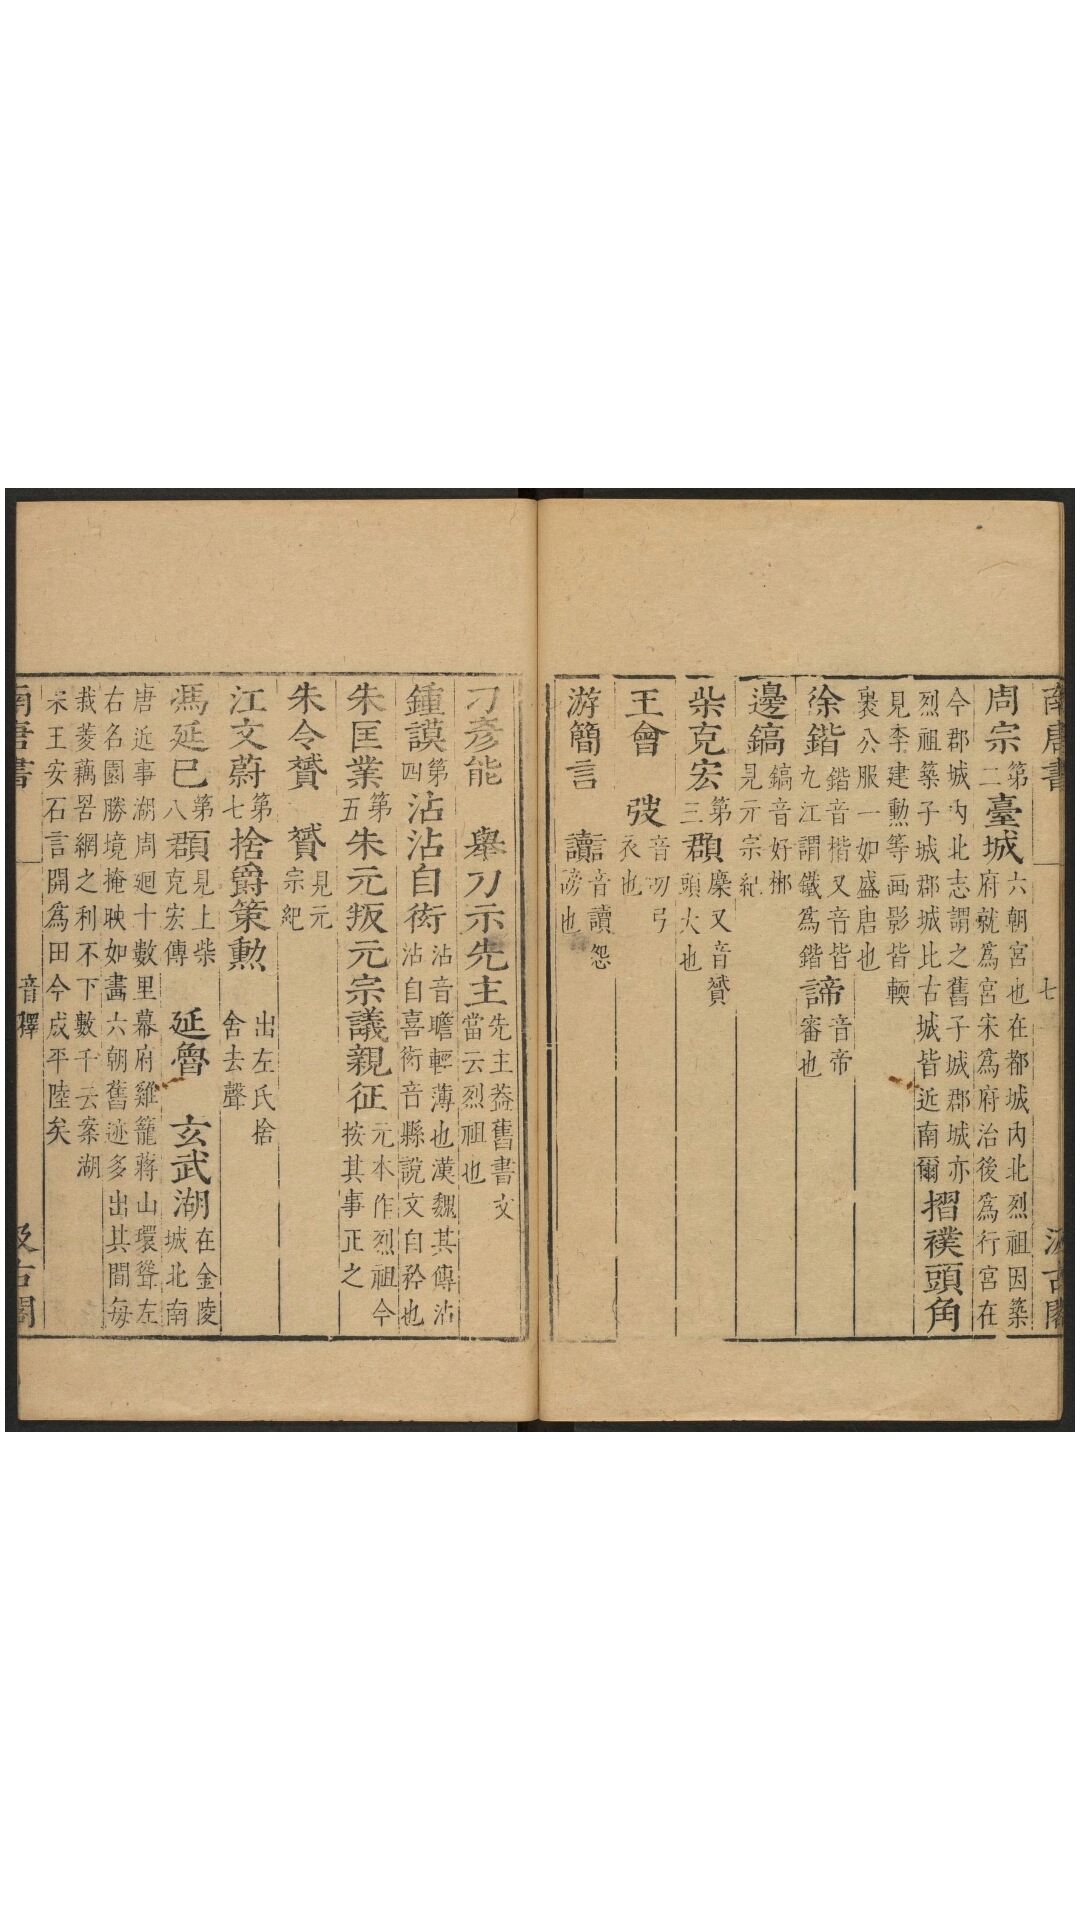 南唐書 七 汲古閣
周宗第二臺城六朝宮也在都城內北烈祖因築府就為宮宋為府治後為行宮在
今郡城內北志謂之舊子城郡城亦烈祖築子城郡城比古城皆近南爾摺襆頭角
見李建勲等画影皆輭裘公服一如盛唐也
徐鍇鍇音楷又音皆九江謂鐵為鍇諦音帝審也
邊鎬鎬音好郴見元宗紀
柴克宏第三頵麇又音贇頭大也
王會 弢音叨弓衣也
游簡言 讟音讀怨謗也
刁彥能 舉刀示先主先主葢舊書文當云烈祖也
鍾謨第四沾沾自衒沾音瞻輕薄也漢魏其傳沾沾自喜衒音縣說文自矜也
朱匡業第五朱元叛元宗議親征元本作烈祖今按其事正之
朱令贇 贇見元宗紀
江文蔚第七捨爵策勲出左氏捨舍去聲
馮延巳第八頵見上柴克宏傳 延魯 玄武湖在金陵城北南
唐近事湖周廻十數里幕府雞籠蔣山環聳左右名園勝境掩映如畵六朝舊迹多出其間每
我菱藕罟網之利不下數千云案湖宋王安石言開為田今成平陸矣
南唐書 音釋 汲古閣